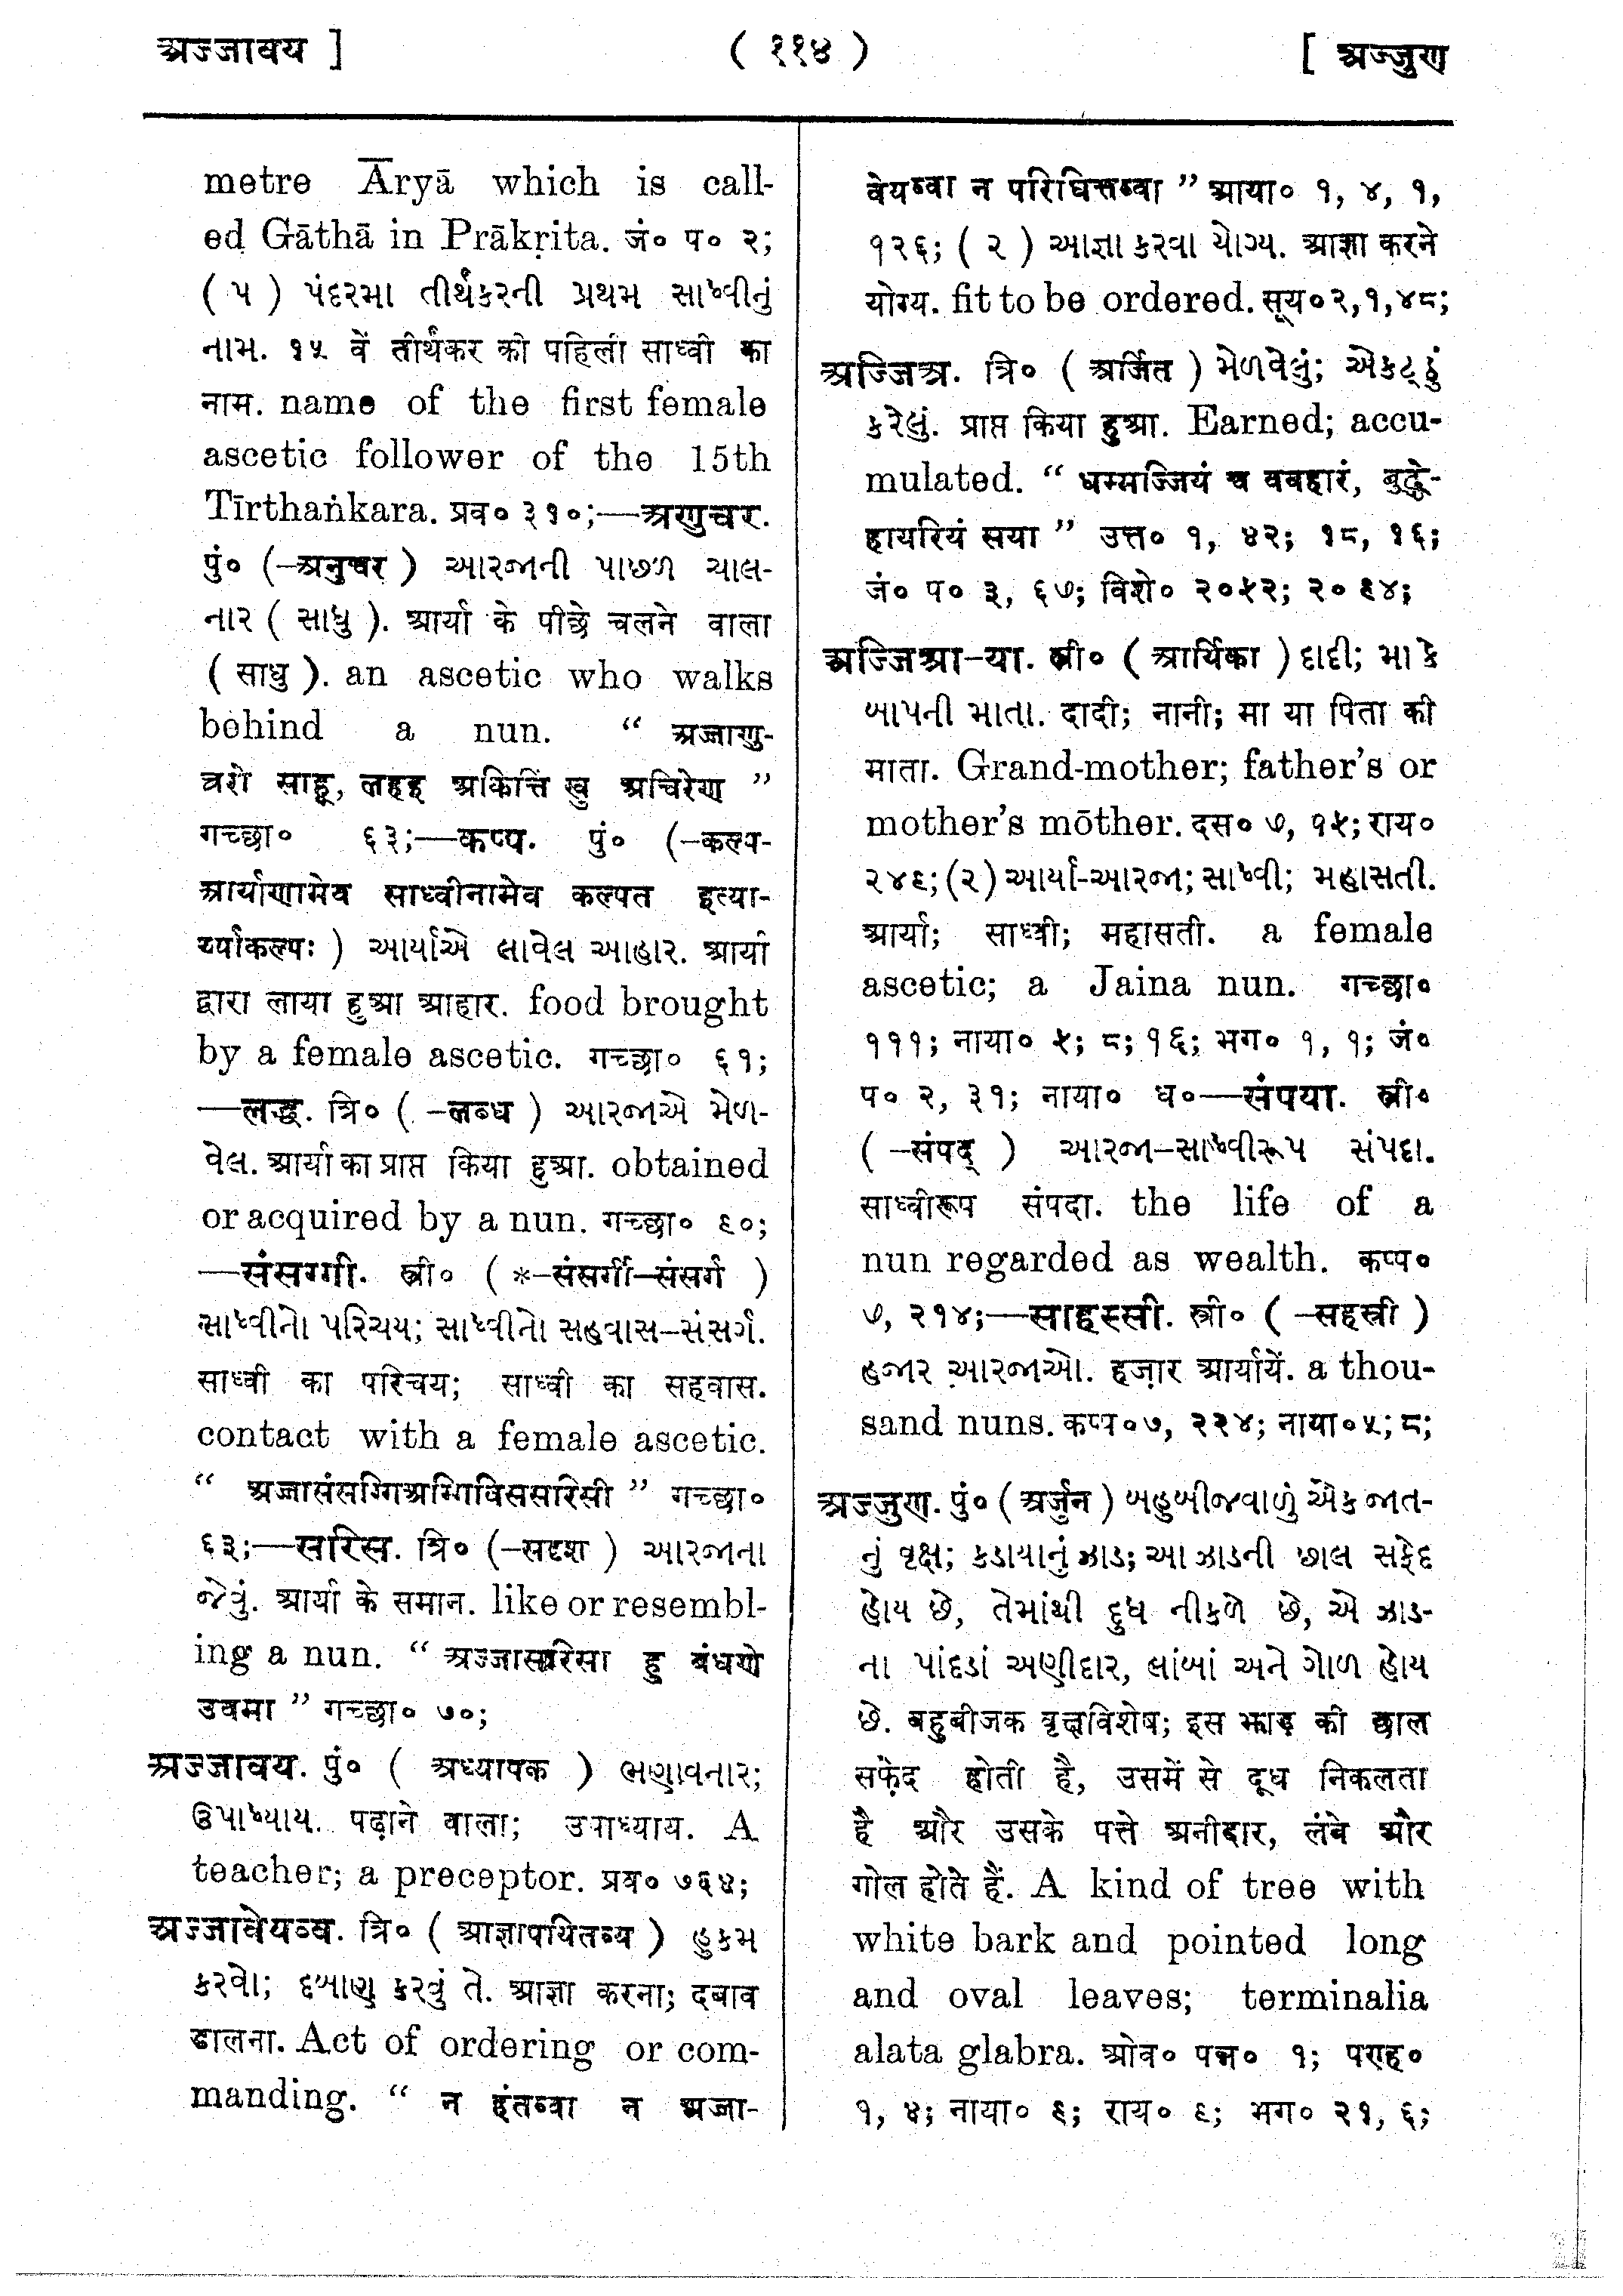 अज्जावय ]
( ११४ )
[ अज्जुण
metre Āryā which is call-
ed Gāthā in Prākṛita. जं० प० २;
( ૫ ) પંદરમા તીર્થંકરની પ્રથમ સાધ્વીનું
નામ. १५ वें तीर्थंकर की पहिली साध्वी का
नाम. name of the first female
ascetic follower of the 15th
Tīrthaṅkara. प्रव० ३१०;—अणुचर.
पुं० (-अनुचर ) આરજાની પાછળ ચાલ-
નાર ( સાધુ ). आर्या के पीछे चलने वाला
( साधु ). an ascetic who walks
behind a nun. “ अज्जाणु-
चरो साहू, लहइ अकित्तिं खु अचिरेण ”
गच्छा० ६३;—कप्प. पुं० (-कल्प-
आर्याणामेव साध्वीनामेव कल्पत इत्या-
र्य्याकल्पः ) આર્યાએ લાવેલ આહાર. आर्या
द्वारा लाया हुआ आहार. food brought
by a female ascetic. गच्छा० ६१;
—लद्ध. त्रि० ( -लब्ध ) આરજાએ મેળ-
વેલ. आर्या का प्राप्त किया हुआ. obtained
or acquired by a nun. गच्छा० ६०;
—संसग्गी. स्त्री० ( *-संसर्गी-संसर्ग )
સાધ્વીનો પરિચય; સાધ્વીનો સહવાસ-સંસર્ગ.
साध्वी का परिचय; साध्वी का सहवास.
contact with a female ascetic.
“ अज्जासंसग्गिअग्गिविससरिसी ” गच्छा०
६३;—सरिस. त्रि० (-सदृश ) આરજાના
જેવું. आर्या के समान. like or resembl-
ing a nun. “ अज्जासरिसा हु बंधणे
उवमा ” गच्छा० ७०;
अज्जावय. पुं० ( अध्यापक ) ભણાવનાર;
ઉપાધ્યાય. पढ़ाने वाला; उपाध्याय. A
teacher; a preceptor. प्रव० ७६४;
अज्जावेयव्व. त्रि० ( आज्ञापयितव्य ) હુકમ
કરવો; દબાણ કરવું તે. आज्ञा करना; दबाव
डालना. Act of ordering or com-
manding. “ न हंतव्वा न अज्जा-
वेयव्वा न परिघित्तव्वा ” आया० १, ४, १,
१२६; ( २ ) આજ્ઞા કરવા યોગ્ય. आज्ञा करने
योग्य. fit to be ordered. सूय० २, १, ४८;
अज्जिअ. त्रि० ( अर्जित ) મેળવેલું; એકટ્ઠું
કરેલું. प्राप्त किया हुआ. Earned; accu-
mulated. “ धम्मज्जियं च ववहारं, बुद्धे-
हायरियं सया ” उत्त० १, ४२; १८, १६;
जं० प० ३, ६७; विशे० २०५२; २०६४;
अज्जिआ-या. स्त्री० ( आर्यिका ) દાદી; મા કે
બાપની માતા. दादी; नानी; मा या पिता की
माता. Grand-mother; father's or
mother's mōther. दस० ७, १५; राय०
२४६; (२) આર્યા-આરજા; સાધ્વી; મહાસતી.
आर्या; साध्वी; महासती. a female
ascetic; a Jaina nun. गच्छा०
१११; नाया० ५; ८; १६; भग० १, १; जं०
प० २, ३१; नाया० ध०—संपया. स्त्री०
( -संपद् ) આરજા-સાધ્વીરૂપ સંપદા.
साध्वीरूप संपदा. the life of a
nun regarded as wealth. कप्प०
७, २१४;—साहस्सी. स्त्री० ( -सहस्री )
હજાર આરજાઓ. हज़ार आर्यायें. a thou-
sand nuns. कप्प० ७, २२४; नाया० ५; ८;
अज्जुण. पुं० ( अर्जुन ) બહુબીજવાળું એક જાત-
નું વૃક્ષ; કડાયાનું ઝાડ; આ ઝાડની છાલ સફેદ
હોય છે, તેમાંથી દુધ નીકળે છે, એ ઝાડ-
ના પાંદડાં અણીદાર, લાંબાં અને ગોળ હોય
છે. बहुबीजक वृक्षविशेष; इस झाड़ की छाल
सफ़ेद होती है, उसमें से दूध निकलता
है और उसके पत्ते अनीदार, लंबे और
गोल होते हैं. A kind of tree with
white bark and pointed long
and oval leaves; terminalia
alata glabra. ओव० पन्न० १; पण्ह०
१, ४; नाया० ६; राय० ६; भग० २१, ६;